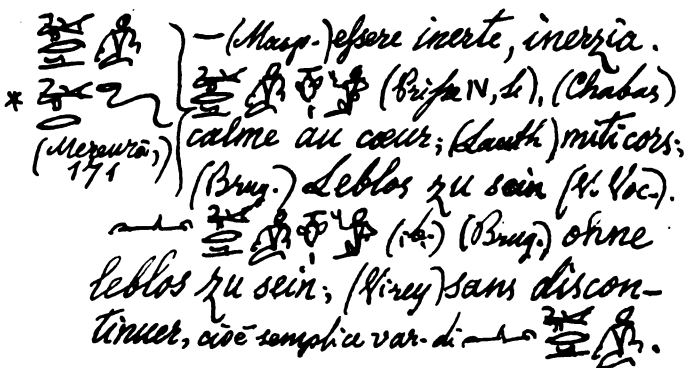 — (Masp.) essere inerte, inerzia.
* (Prisse IV, 2), (Chabas)
(Mereurā, 171) calme au cœur; (Lauth) miticors;
(Brug.) Leblos zu sein (V. Voc.).
(ib.) (Brug.) ohne
leblos zu sein; (Virey) sans discon-
tinuer, cioè semplice var. di